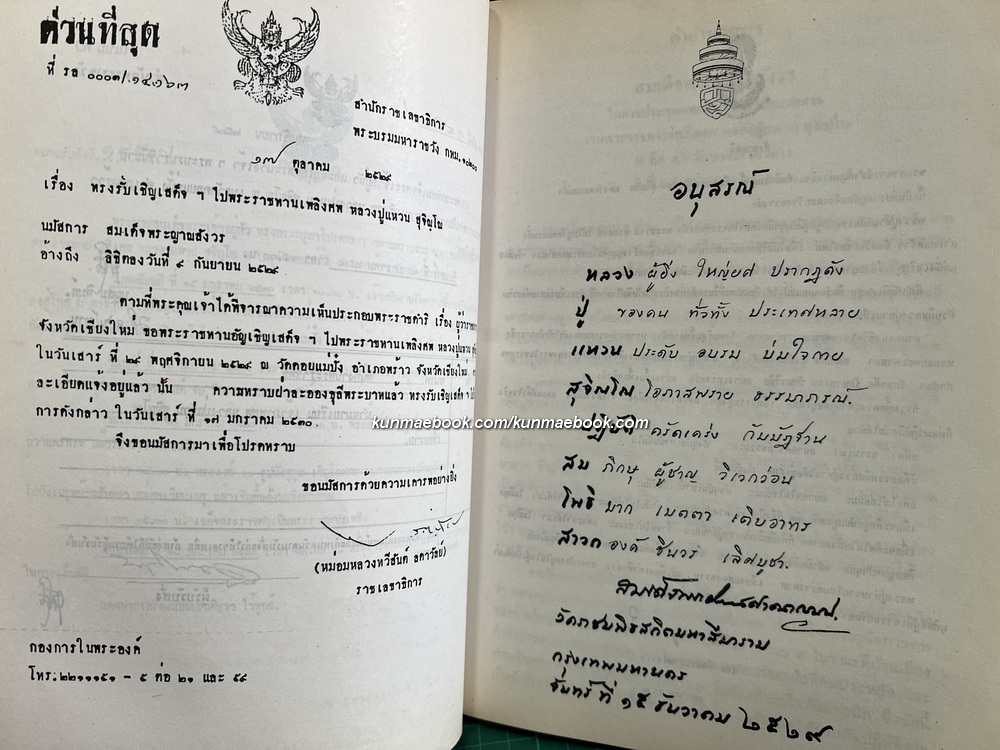 ด่วนที่สุด
ที่ รล ๐๐๐๓/
สำนักราชเลขาธิการ
พระบรมมหาราชวัง กทม.๑๐๒๐๐
๑๗ ตุลาคม ๒๕๒๙
เรื่อง ทรงรับเชิญเสด็จ ฯ ไปพระราชทานเพลิงศพ หลวงปู่แหวน สุจิณฺโณ
นมัสการ สมเด็จพระญาณสังวร
อ้างถึง ลิขิตลงวันที่ ๙ กันยายน ๒๕๒๙
ตามที่พระคุณเจ้าได้พิจารณาความเห็นประกอบพระราชดำริ เรื่อง
จังหวัดเชียงใหม่ ขอพระราชทานอัญเชิญเสด็จ ฯ ไปพระราชทานเพลิงศพ หลวงปู่แหวน
ในวันเสาร์ ที่ ๒๙ พฤศจิกายน ๒๕๒๙ ณ วัดดอยแม่ปั๋ง อำเภอพร้าว จังหวัดเชียงใหม่
ละเอียดแจ้งอยู่แล้ว นั้น ความทราบฝ่าละอองธุลีพระบาทแล้ว ทรงรับเชิญเสด็จ ฯ
การดังกล่าว ในวันเสาร์ ที่ ๑๗ มกราคม ๒๕๓๐
จึงขอนมัสการมาเพื่อโปรดทราบ
ขอนมัสการด้วยความเคารพอย่างยิ่ง
(หม่อมหลวงทวีสันต์ ลดาวัลย์)
ราชเลขาธิการ
กองการในพระองค์
โทร.๒๒๑๑๑๕๑ - ๕ ต่อ ๒๑ และ ๕๙
อนุสรณ์
หลวง ผู้ยิ่ง ใหญ่ยศ ปรากฏดัง
ปู่ ของคน ทั่วทั้ง ประเทศหลาย
แหวน ประดับ อบรม บ่มใจกาย
สุจิณฺโณ โอภาสพราย ธรรมาภรณ์.
ปฏิบัติ ครัดเคร่ง กัมมัฏฐาน
สม ภิกษุ ผู้ชาญ วิเวกว่อน
โพธิ มาก เมตตา เดิบอาทร
สาวก องค์ ชินวร เลิศบูชา.
วัดราชบพิธสถิตมหาสีมาราม
กรุงเทพมหานคร
จันทร์ ที่ ๑๕ ธันวาคม ๒๕๒๙
kunmaebook.com/kunmaebook.com